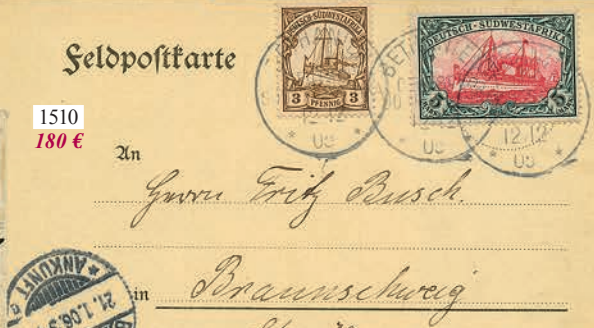 Feldpostkarte
DEUTSCH-SÜDWESTAFRIKA
3 PFENNIG 3
DEUTSCH-SÜDWESTAFRIKA
5 5
12.12
05
05
12.12
05
1510
180 €
An
Herrn Fritz Busch.
in Braunschweig
* ANKUNFT *
21.1.06